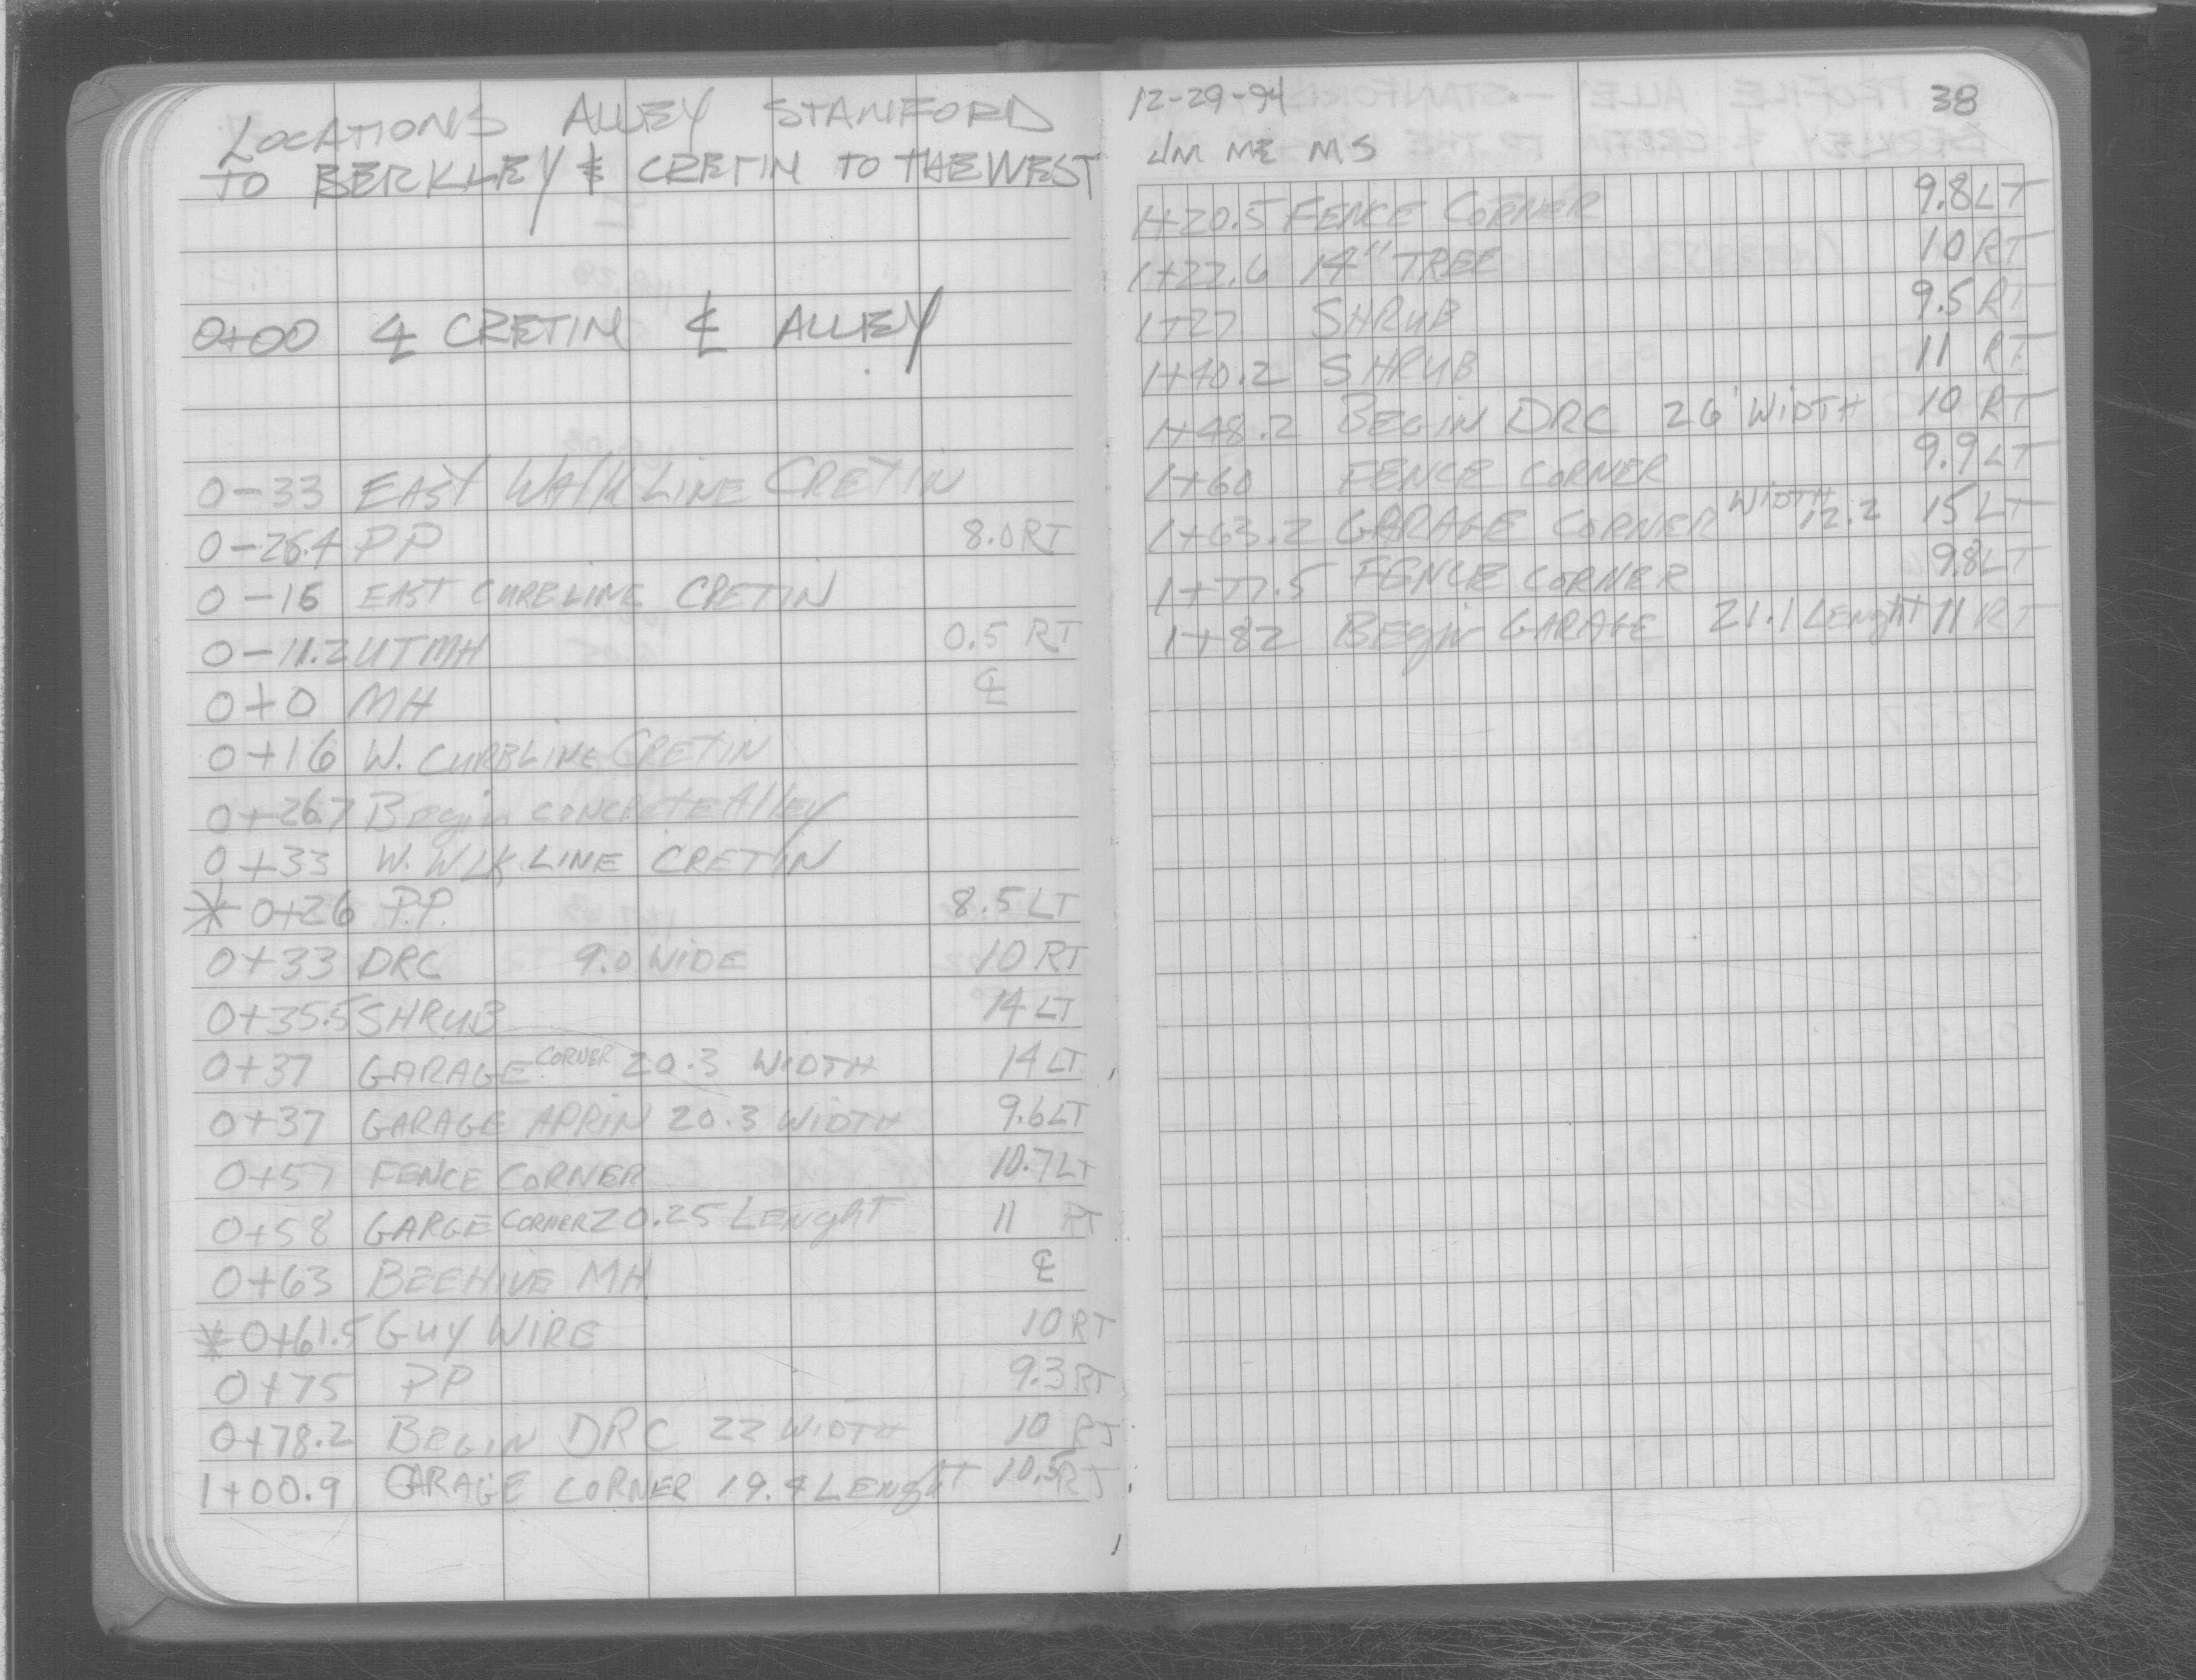 LOCATIONS ALLEY STANFORD
TO BERKLEY & CRETIN TO THE WEST
0+00 ℄ CRETIN ℄ ALLEY
0-33 EAST WALK LINE CRETIN
0-26.4 PP 8.0 RT
0-16 EAST CURBLINE CRETIN
0-11.2 UTMH 0.5 RT
0+0 MH ℄
0+16 W. CURBLINE CRETIN
0+26.7 Begin CONCRETE Alley
0+33 W. WLK. LINE CRETIN
* 0+26 P.P. 8.5 LT
0+33 DRC 9.0 WIDE 10 RT
0+35.5 SHRUB 14 LT
0+37 GARAGE CORNER 20.3 WIDTH 14 LT
0+37 GARAGE APRIN 20.3 WIDTH 9.6 LT
0+57 FENCE CORNER 10.7 LT
0+58 GARGE CORNER 20.25 LENghT 11 RT
0+63 BEEHIVE MH ℄
* 0+61.5 GUY WIRE 10 RT
0+75 PP 9.3 RT
0+78.2 BEGIN DRC 22 WIDTH 10 RT
1+00.9 GARAGE CORNER 19.4 LENghT 10.5 RT
12-29-94 38
JM ME MS
1+20.5 FENCE CORNER 9.8 LT
1+22.6 14" TREE 10 RT
1+27 SHRUB 9.5 RT
1+40.2 SHRUB 11 RT
1+48.2 BEGIN DRC 26' WIDTH 10 RT
1+60 FENCE CORNER 9.9 LT
1+63.2 GARAGE CORNER WIDTH 12.2 15 LT
1+77.5 FENCE CORNER 9.8 LT
1+82 BEgin GARAGE 21.1 LENghT 11 RT